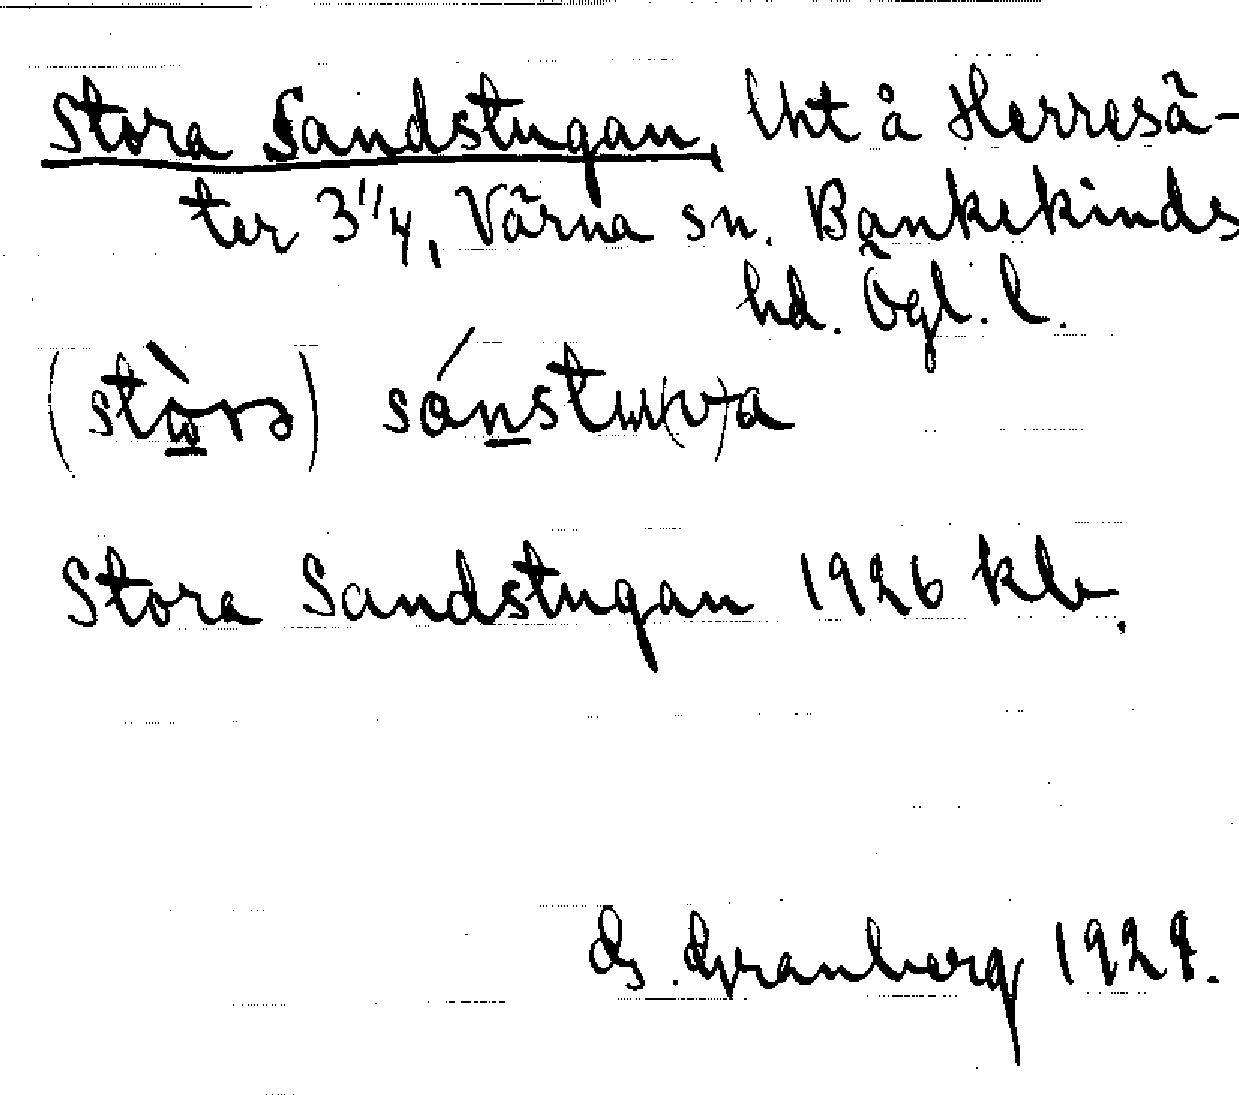 Stora Sandstugan, lht å Herresä-
ter 3 1/4, Värna sn. Bankekinds
hd. Ögl. l.
sánstuw(v)a
Stora Sandstugan 1926 kb.
G. Granberg 1929.